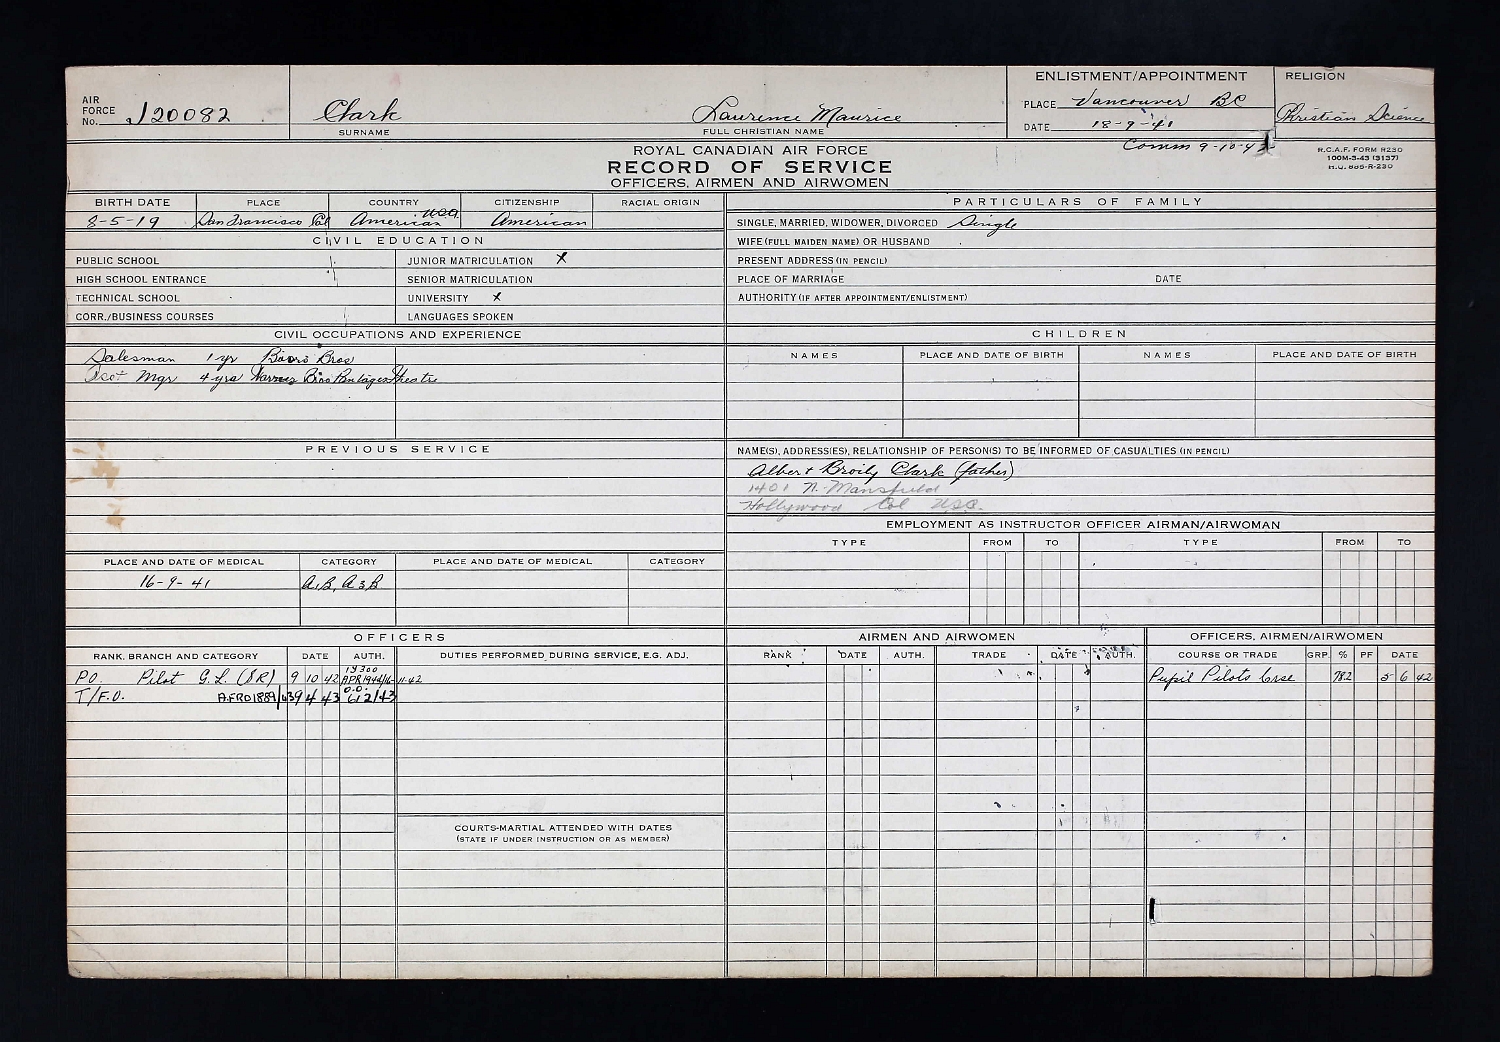 AIR FORCE No. J20082
Clark
SURNAME
Laurence Maurice
FULL CHRISTIAN NAME
ENLISTMENT/APPOINTMENT
PLACE Vancouver BC
DATE 18-9-41
Comm 9-10-42
RELIGION
Christian Science
R.C.A.F. FORM R230
100M-3-43 (3137)
H.Q. 885-R-230
ROYAL CANADIAN AIR FORCE
RECORD OF SERVICE
OFFICERS, AIRMEN AND AIRWOMEN
BIRTH DATE PLACE COUNTRY CITIZENSHIP RACIAL ORIGIN
8-5-19 San Francisco Cal American USA American
CIVIL EDUCATION
PUBLIC SCHOOL JUNIOR MATRICULATION X
HIGH SCHOOL ENTRANCE SENIOR MATRICULATION
TECHNICAL SCHOOL UNIVERSITY X
CORR./BUSINESS COURSES LANGUAGES SPOKEN
CIVIL OCCUPATIONS AND EXPERIENCE
Salesman 1 yr Bros
Asst Mgr 4 yrs Warner Bros Pantages Theatre
PREVIOUS SERVICE
PLACE AND DATE OF MEDICAL CATEGORY PLACE AND DATE OF MEDICAL CATEGORY
16-9-41 A1B, A3B
PARTICULARS OF FAMILY
SINGLE, MARRIED, WIDOWER, DIVORCED Single
WIFE (FULL MAIDEN NAME) OR HUSBAND
PRESENT ADDRESS (IN PENCIL)
PLACE OF MARRIAGE DATE
AUTHORITY (IF AFTER APPOINTMENT/ENLISTMENT)
CHILDREN
NAMES PLACE AND DATE OF BIRTH NAMES PLACE AND DATE OF BIRTH
NAME(S), ADDRESS(ES), RELATIONSHIP OF PERSON(S) TO BE INFORMED OF CASUALTIES (IN PENCIL)
Albert Broily Clark (father)
1401 N. Mansfield
Hollywood Cal USA.
EMPLOYMENT AS INSTRUCTOR OFFICER AIRMAN/AIRWOMAN
TYPE FROM TO TYPE FROM TO
OFFICERS
RANK, BRANCH AND CATEGORY DATE AUTH. DUTIES PERFORMED DURING SERVICE, E.G. ADJ.
P.O. Pilot G.L. (SR) 9 10 42 19300 APR1942/16-11-42
T/F.O. AFRO1889/43 9 4 43 O.O. 612/43
COURTS-MARTIAL ATTENDED WITH DATES
(STATE IF UNDER INSTRUCTION OR AS MEMBER)
AIRMEN AND AIRWOMEN
RANK DATE AUTH. TRADE DATE AUTH.
OFFICERS, AIRMEN/AIRWOMEN
COURSE OR TRADE GRP. % PF DATE
Pupil Pilots Crse 78.2 5 6 42